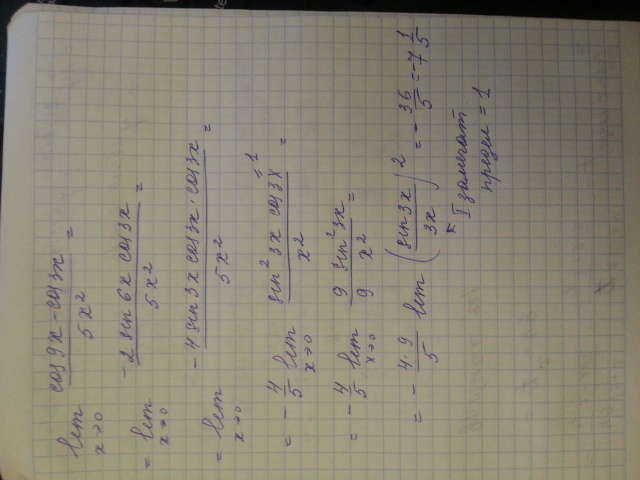 lim x→0 (cos9x - cos3x)/(5x²) =
= lim x→0 (-2 sin6x cos3x)/(5x²) =
= lim x→0 (-4 sin3x cos3x · cos3x)/(5x²) =
= -4/5 lim x→0 (sin²3x cos3x = 1)/(x²) =
= -4/5 lim x→0 (9 sin²3x)/(9 x²) =
= -(4·9)/5 lim (sin3x/3x)² = -36/5 = -7 1/5
I замечат
предел = 1